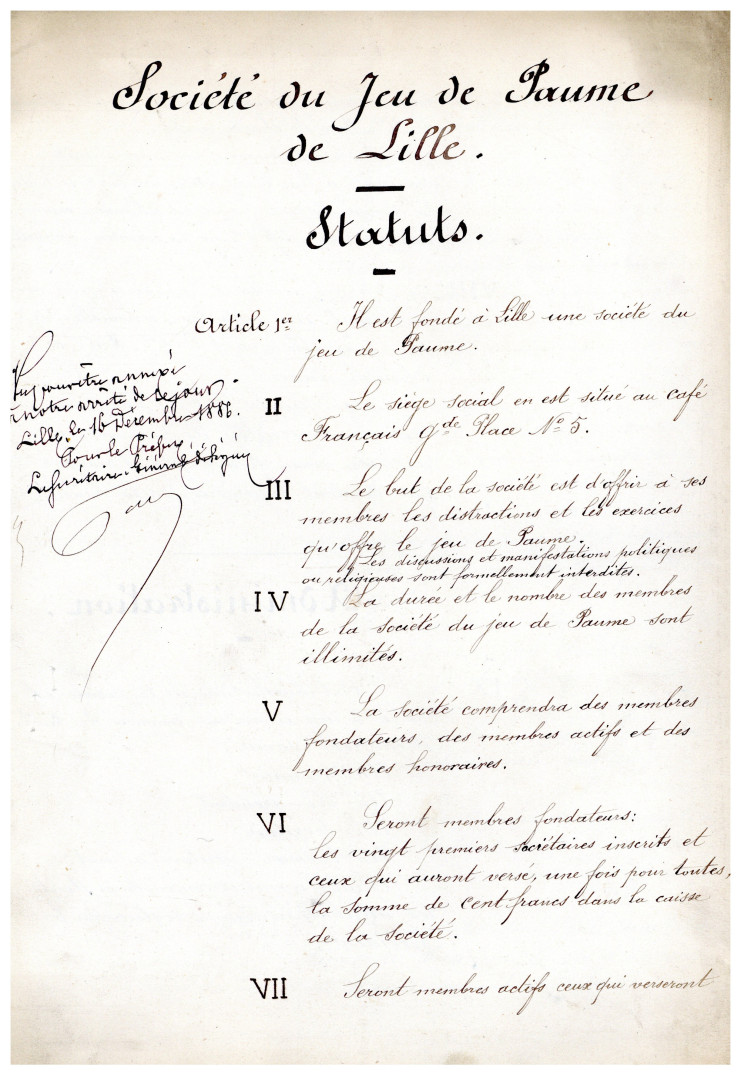 Société du Jeu de Paume
de Lille.
Statuts.
Article 1er Il est fondé à Lille une société du
jeu de Paume.
Vu pour être annexé
à notre arrêté de ce jour.
Lille, le 16 Décembre 1886.
Pour le Préfet
Le Secrétaire Général délégué
II Le siège social en est situé au café
Français gde Place No 5.
III Le but de la société est d'offrir à ses
membres les distractions et les exercices
qu'offre le jeu de Paume.
Les discussions et manifestations politiques
ou religieuses sont formellement interdites.
IV La durée et le nombre des membres
de la société du jeu de Paume sont
illimités.
V La société comprendra des membres
fondateurs, des membres actifs et des
membres honoraires.
VI Seront membres fondateurs:
les vingt premiers sociétaires inscrits et
ceux qui auront versé, une fois pour toutes,
la somme de cent francs dans la caisse
de la société.
VII Seront membres actifs ceux qui verseront